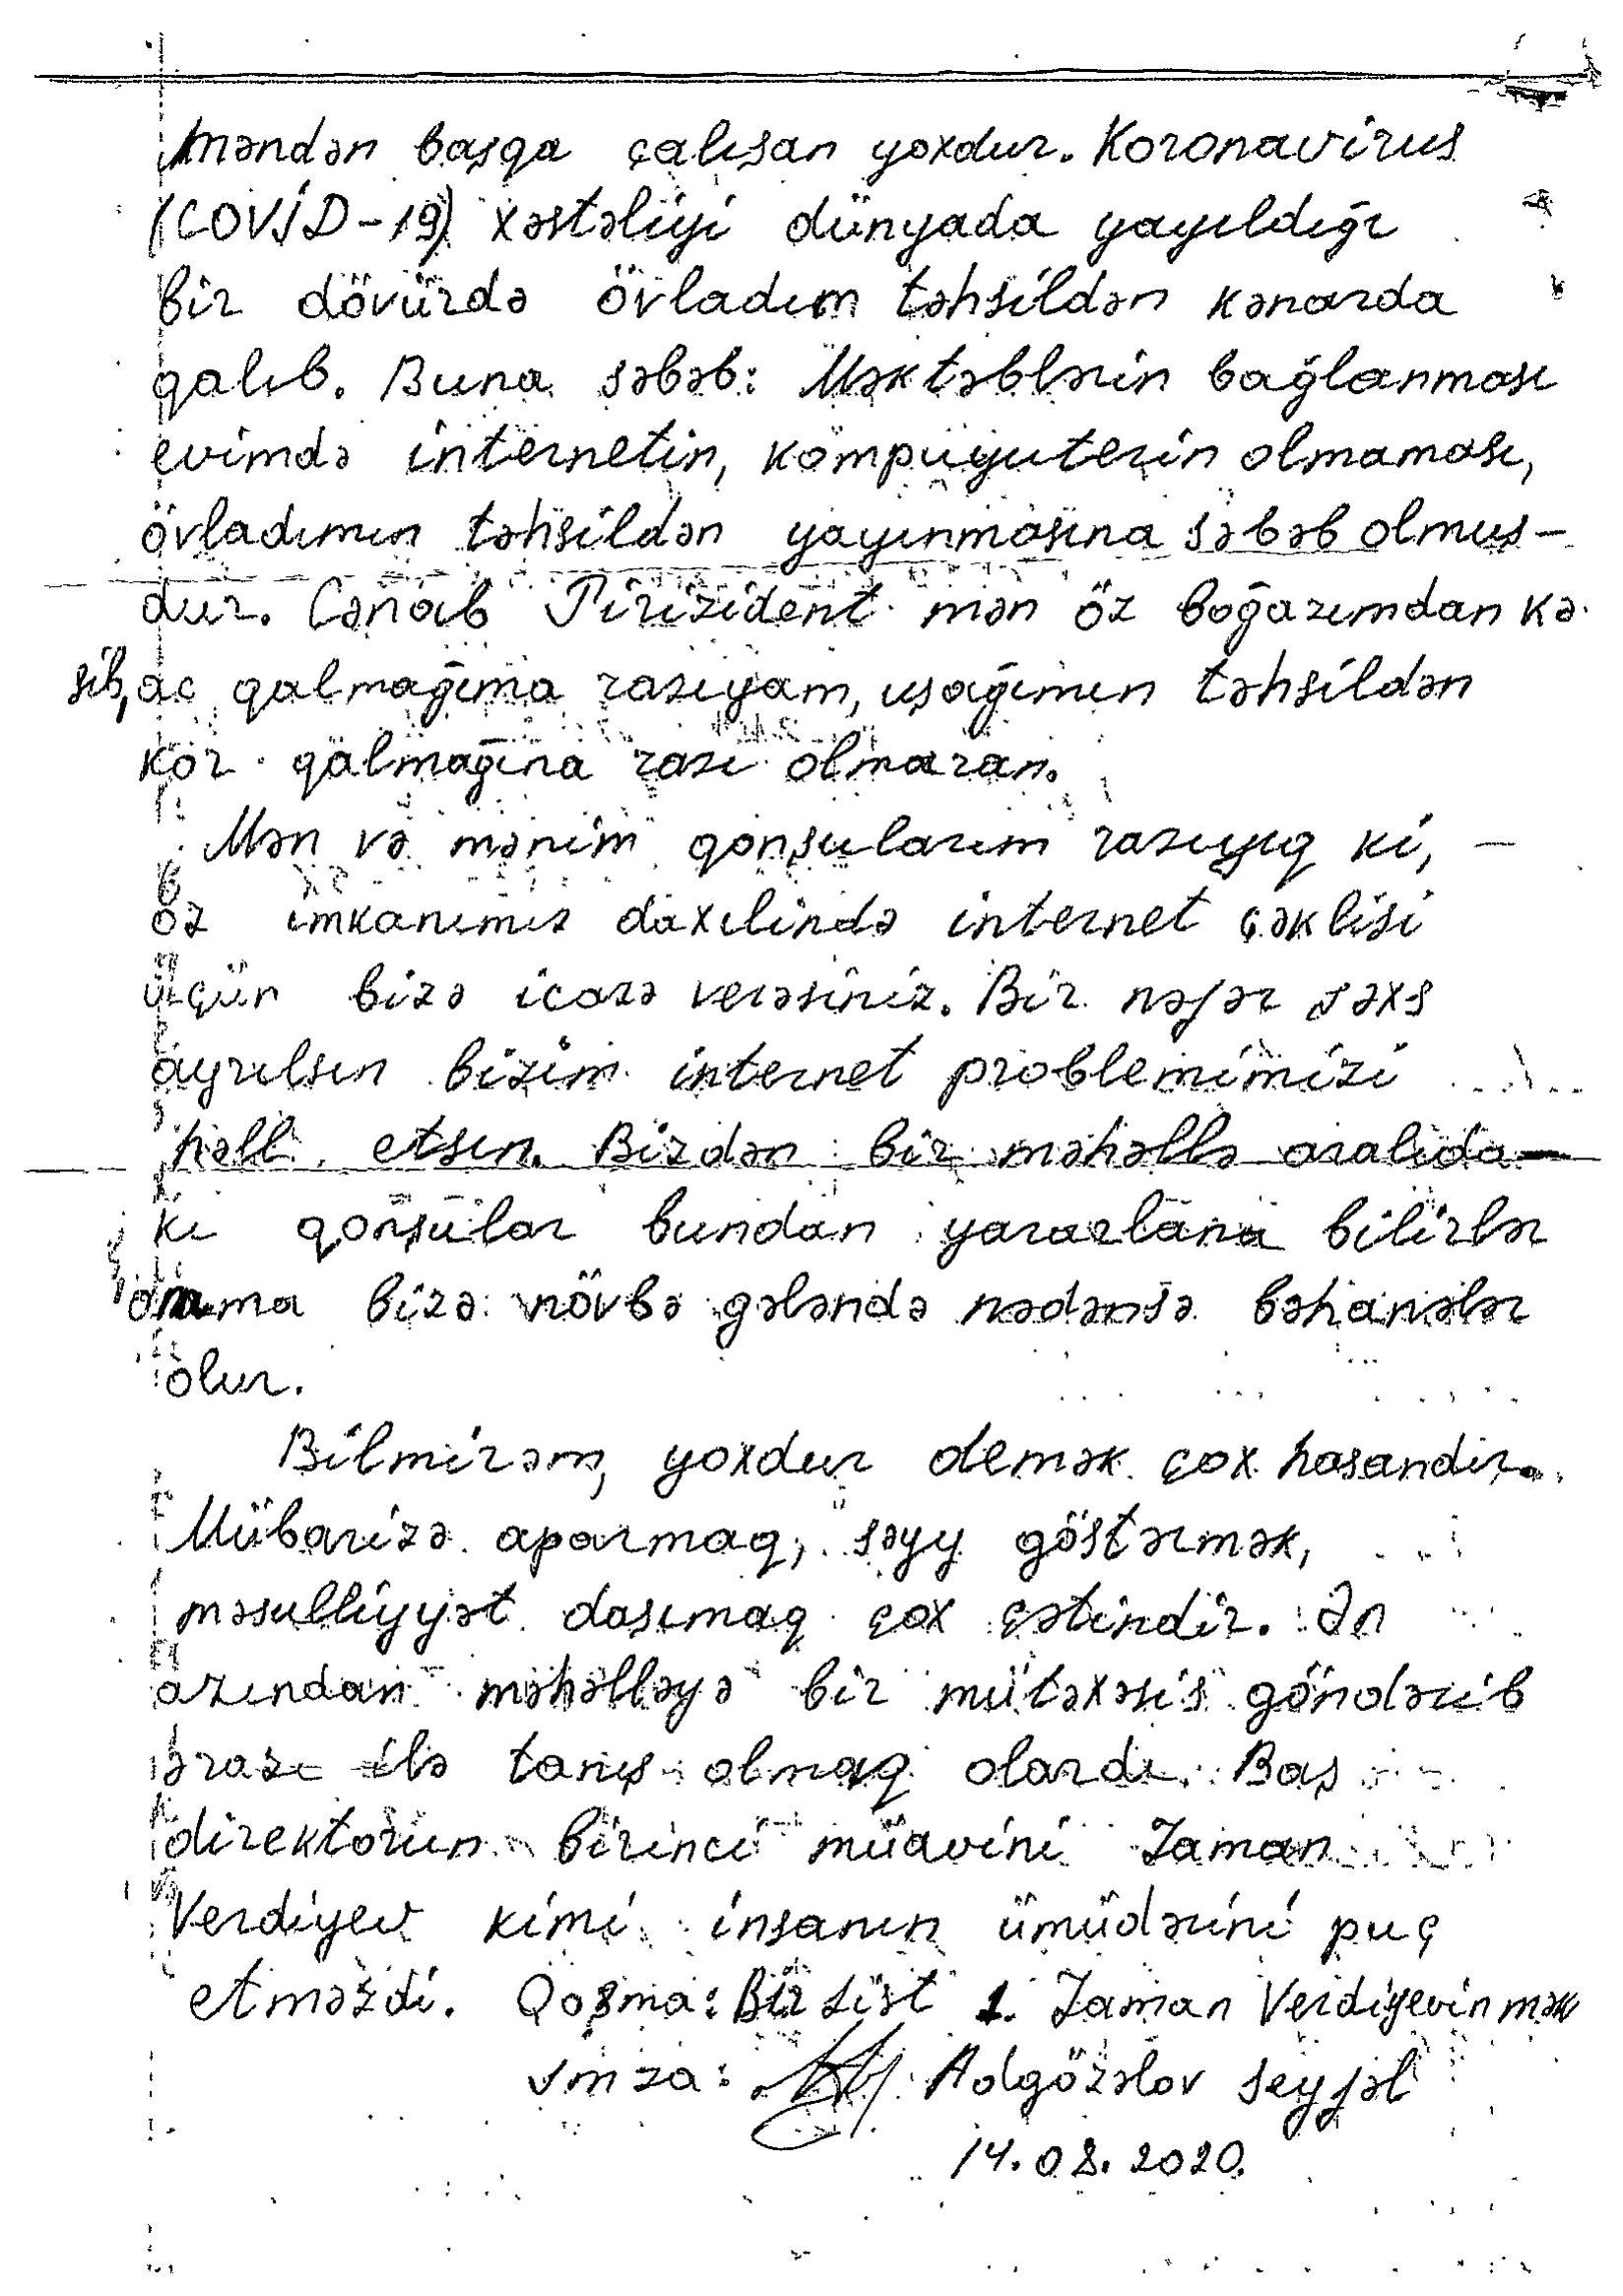 Məndən başqa çalışan yoxdur. Koronavirus
(COVİD-19) xəstəliyi dünyada yayıldığı
bir dövürdə övladım təhsildən kənarda
qalıb. Buna səbəb: Məktəblərin bağlanması
evimdə internetin, kompuyuterin olmaması,
övladımın təhsildən yayınmasına səbəb olmuş-
dur. Cənab Pirizident mən öz boğazımdan kə-
sib, ac qalmağıma razıyam, uşağımın təhsildən
kor qalmağına razı olmaram.
Mən və mənim qonşularım razıyıq ki,
öz imkanımız daxılində internet çəklişi
üçün bizə icazə verəsiniz. Bir nəfər şəxs
ayrılsın bizim internet problemimizi
həll etsın. Bizdən bir məhəllə aralıda-
kı qonşular bundan yararlana bilirlər
amma bizə növbə gələndə nədənsə bəhanələr
olur.
Bilmirəm, yoxdur demək çox hasandır.
Mübarizə aparmaq, səyy göstərmək,
məsulliyyət daşımaq çox çətindir. Ən
azından məhəlləyə bir mütəxəsis göndərib
ərazi ilə tanış olmaq olardı. Baş
direktorun birinci müavini Zaman
Verdiyev kimi insanın ümüdərini puç
etməzdi. Qoşma: Bir List 1. Zaman Verdiyevin mək
İmza: Adgözəlov Seyfəl
14.08.2020.